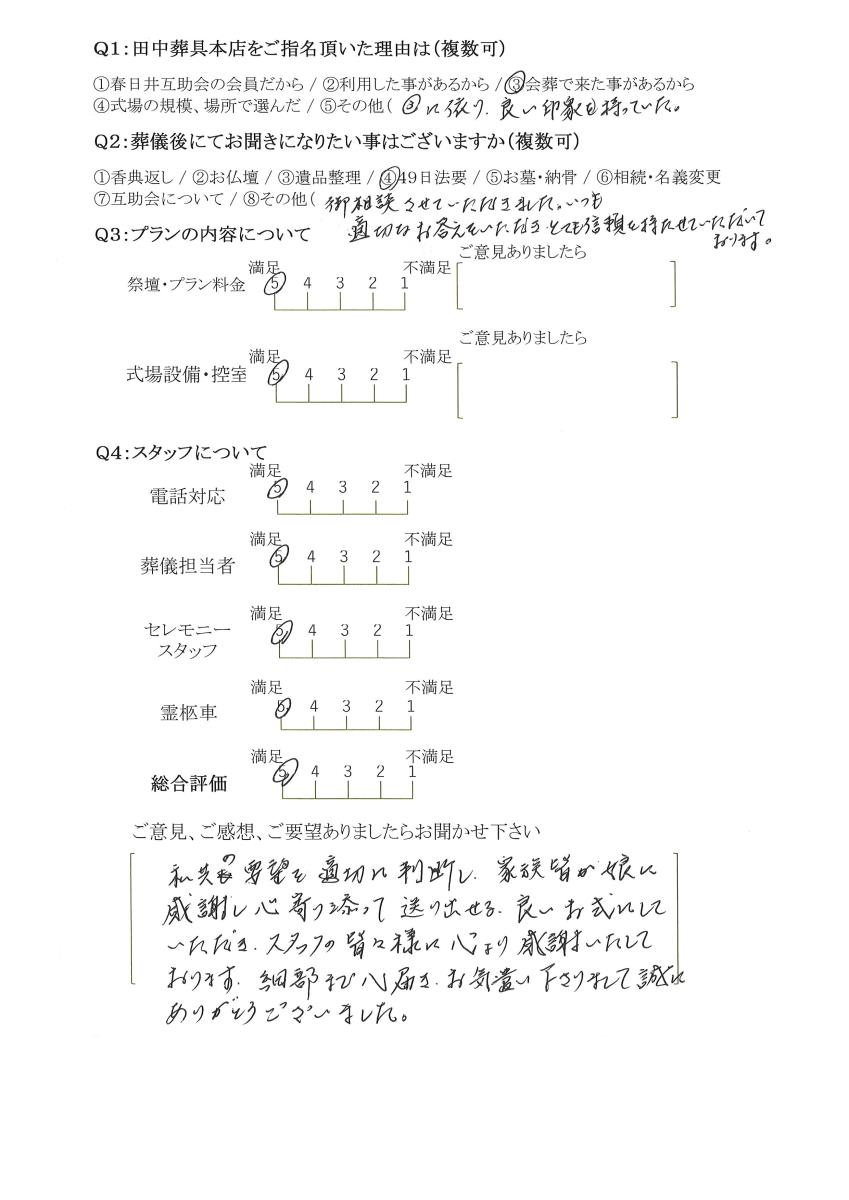 Q1：田中葬具本店をご指名頂いた理由は（複数可）
①春日井互助会の会員だから / ②利用した事があるから / ③会葬で来た事があるから
④式場の規模、場所で選んだ / ⑤その他( ③に依り、良い印象を持っていた。
Q2：葬儀後にてお聞きになりたい事はございますか（複数可）
①香典返し / ②お仏壇 / ③遺品整理 / ④49日法要 / ⑤お墓・納骨 / ⑥相続・名義変更
⑦互助会について / ⑧その他( 御相談させていただきました。いつも
適切なお答えをいただきとても信頼を持たせていただいて
おります。
Q3：プランの内容について
ご意見ありましたら
満足 不満足
祭壇・プラン料金 5 4 3 2 1
ご意見ありましたら
満足 不満足
式場設備・控室 5 4 3 2 1
Q4：スタッフについて
満足 不満足
電話対応 5 4 3 2 1
満足 不満足
葬儀担当者 5 4 3 2 1
満足 不満足
セレモニー 5 4 3 2 1
スタッフ
満足 不満足
霊柩車 5 4 3 2 1
満足 不満足
総合評価 5 4 3 2 1
ご意見、ご感想、ご要望ありましたらお聞かせ下さい
私共の要望を適切に判断し、家族皆が娘に
感謝し心寄り添って送り出せる、良いお式にして
いただき、スタッフの皆々様に心より感謝いたして
おります。細部まで心届き、お気遣い下さりまして誠に
ありがとうございました。